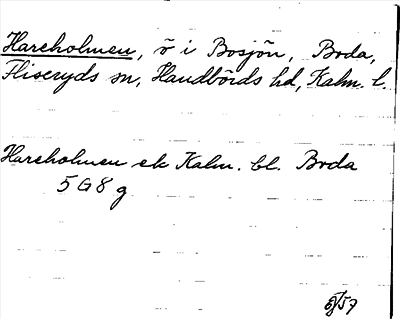 Hareholmen, ö i Bosjön, Boda,
Fliseryds sn, Handbörds hd, Kalm. l.
Hareholmen ek Kalm. bl. Boda
5 G 8 g
57